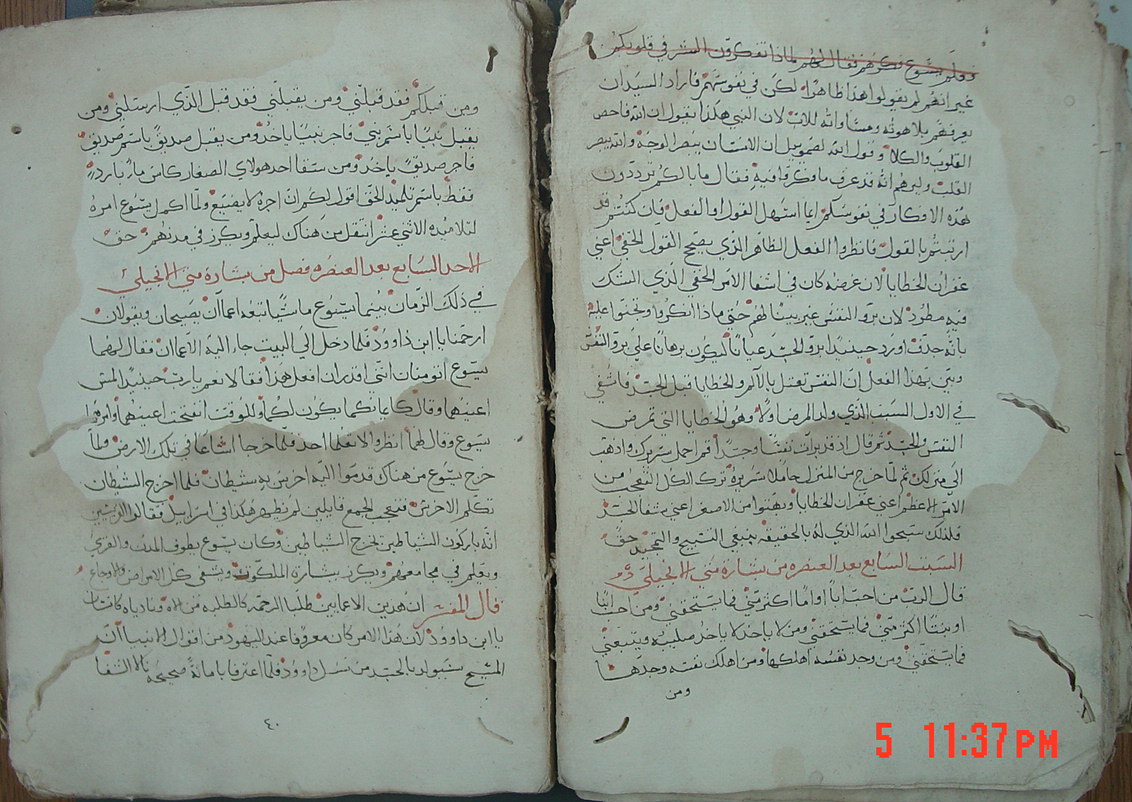 وعلم يسوع فكرهم فقال لهم لماذا تفكرون الشر في قلوبكم
غير انهم لم يقولوا هذا ظاهرًا لكن في نفوسهم فاراد السيد ان
يعرفهم بلاهوته ومساواته للاب لان النبي هكذا يقول ان الله فاحص
القلوب والكلا وقول الله لصمويل ان الانسان ينظر الوجه والله ينظر
القلب وليريهم انه قد عرف ما فكروا فيه فقال ما بالكم ترددون
هذه الافكار في نفوسكم ايما اسهل القول او الفعل فان كنتم قد
ارتبتم بالقول فانظروا الفعل الظاهر الذي يصحح القول الخفي اعني
غفران الخطايا لان غرضه كان في اشفا الامر الخفي الذي الشك
فيه مطرود لان برو النفس غير بينًا لهم حتى ماذا انكروا وتحتوا عليه
بانه جدف اورد حينيد برو الجسد عيانًا ليكون برهانًا على برو النفس
وبين بهذا الفعل ان النفس تعتل بالالم والخطايا قبل الجسد فاشفى
في الاول السبب الذي ولد المرض اولًا وهو الخطايا التي تمرض
النفس والجسد ثم قال اذ قد برات نفسًا وجسدًا قم احمل سريرك واذهب
الى منزلك ثم لما خرج من المنزل حاملًا سريره ترك الكل التعجب من
الامر الاعظم اعني غفران الخطايا وبهتوا من الاصغر اعني شفا الجسد
فلذلك سبحوا الله الذي له بالحقيقه ينبغي التسبيح والتمجيد حق
السبت السابع بعد العنصره من بشارة متى الانجيلي
قال الرب من احب ابًا او امًا اكثر مني فما يستحقني ومن احب ابنًا
او بنتًا اكثر مني فما يستحقني ومن لا ياخد لا ياخذ صليبه ويتبعني
فما يستحقني ومن وجد نفسه اهلكها ومن اهلك نفسه وجدها
ومن
ومن قبلكم فقد قبلني ومن يقبلني فقد قبل الذي ارسلني ومن
يقبل نبيًا باسم نبي فاجر نبيًا ياخد ومن يقبل صديقًا باسم صديق
فاجر صديقً ياخد ومن سقا احد هولاي الصغار كاس ماء باردًا
فقط باسم تلميذ الحق اقول لكم ان اجره لا يضيع ولما اكمل يسوع امره
لتلاميذه الاثني عشر انتقل من هناك ليعلم ويكرز في مدنهم حق
الاحد السابع بعد العنصره فصل من بشارة متى الانجيلي
في ذلك الزمان بينما يسوع ماشيًا تبعه اعماان يصيحان ويقولان
ارحمنا يا ابن داوود فلما دخل الى البيت جاء اليه الاعماان فقال لهما
يسوع اتومنان انني اقدر ان افعل هذا فقالا نعم يا رب حينيد المس
اعينهما وقال كايمانكما يكون لكما وللوقت انفتحت اعينهما وامرهما
يسوع وقال لهما انظروا لا تعلما احد فلما خرجا اشاعا في تلك الارض ولما
خرج يسوع من هناك قدموا اليه اخرس به شيطان فلما اخرج الشيطان
تكلم الاخرس فتعجب الجمع قايلين لم يظهر هكذا في اسراييل فقالوا الفريسيين
انه باركون الشياطين يخرج الشياطين وكان يسوع يطوف المدن والقرى
ويعلم في مجامعهم ويكرز ببشارة الملكوت ويشفي كل الامراض والاوجاع
قال المفسر ان هدين الاعمايين طلبا الرحمه كالطلبه من الاه وناديا
يا ابن داوود لان هذا الامر كان معروفًا عند اليهود من اقوال الانبيا ان
المسيح سيولد بالجسد من نسل داوود فلما اعترفا بامانة صحيحه نالا الشفا
٤٠
5 11:37PM